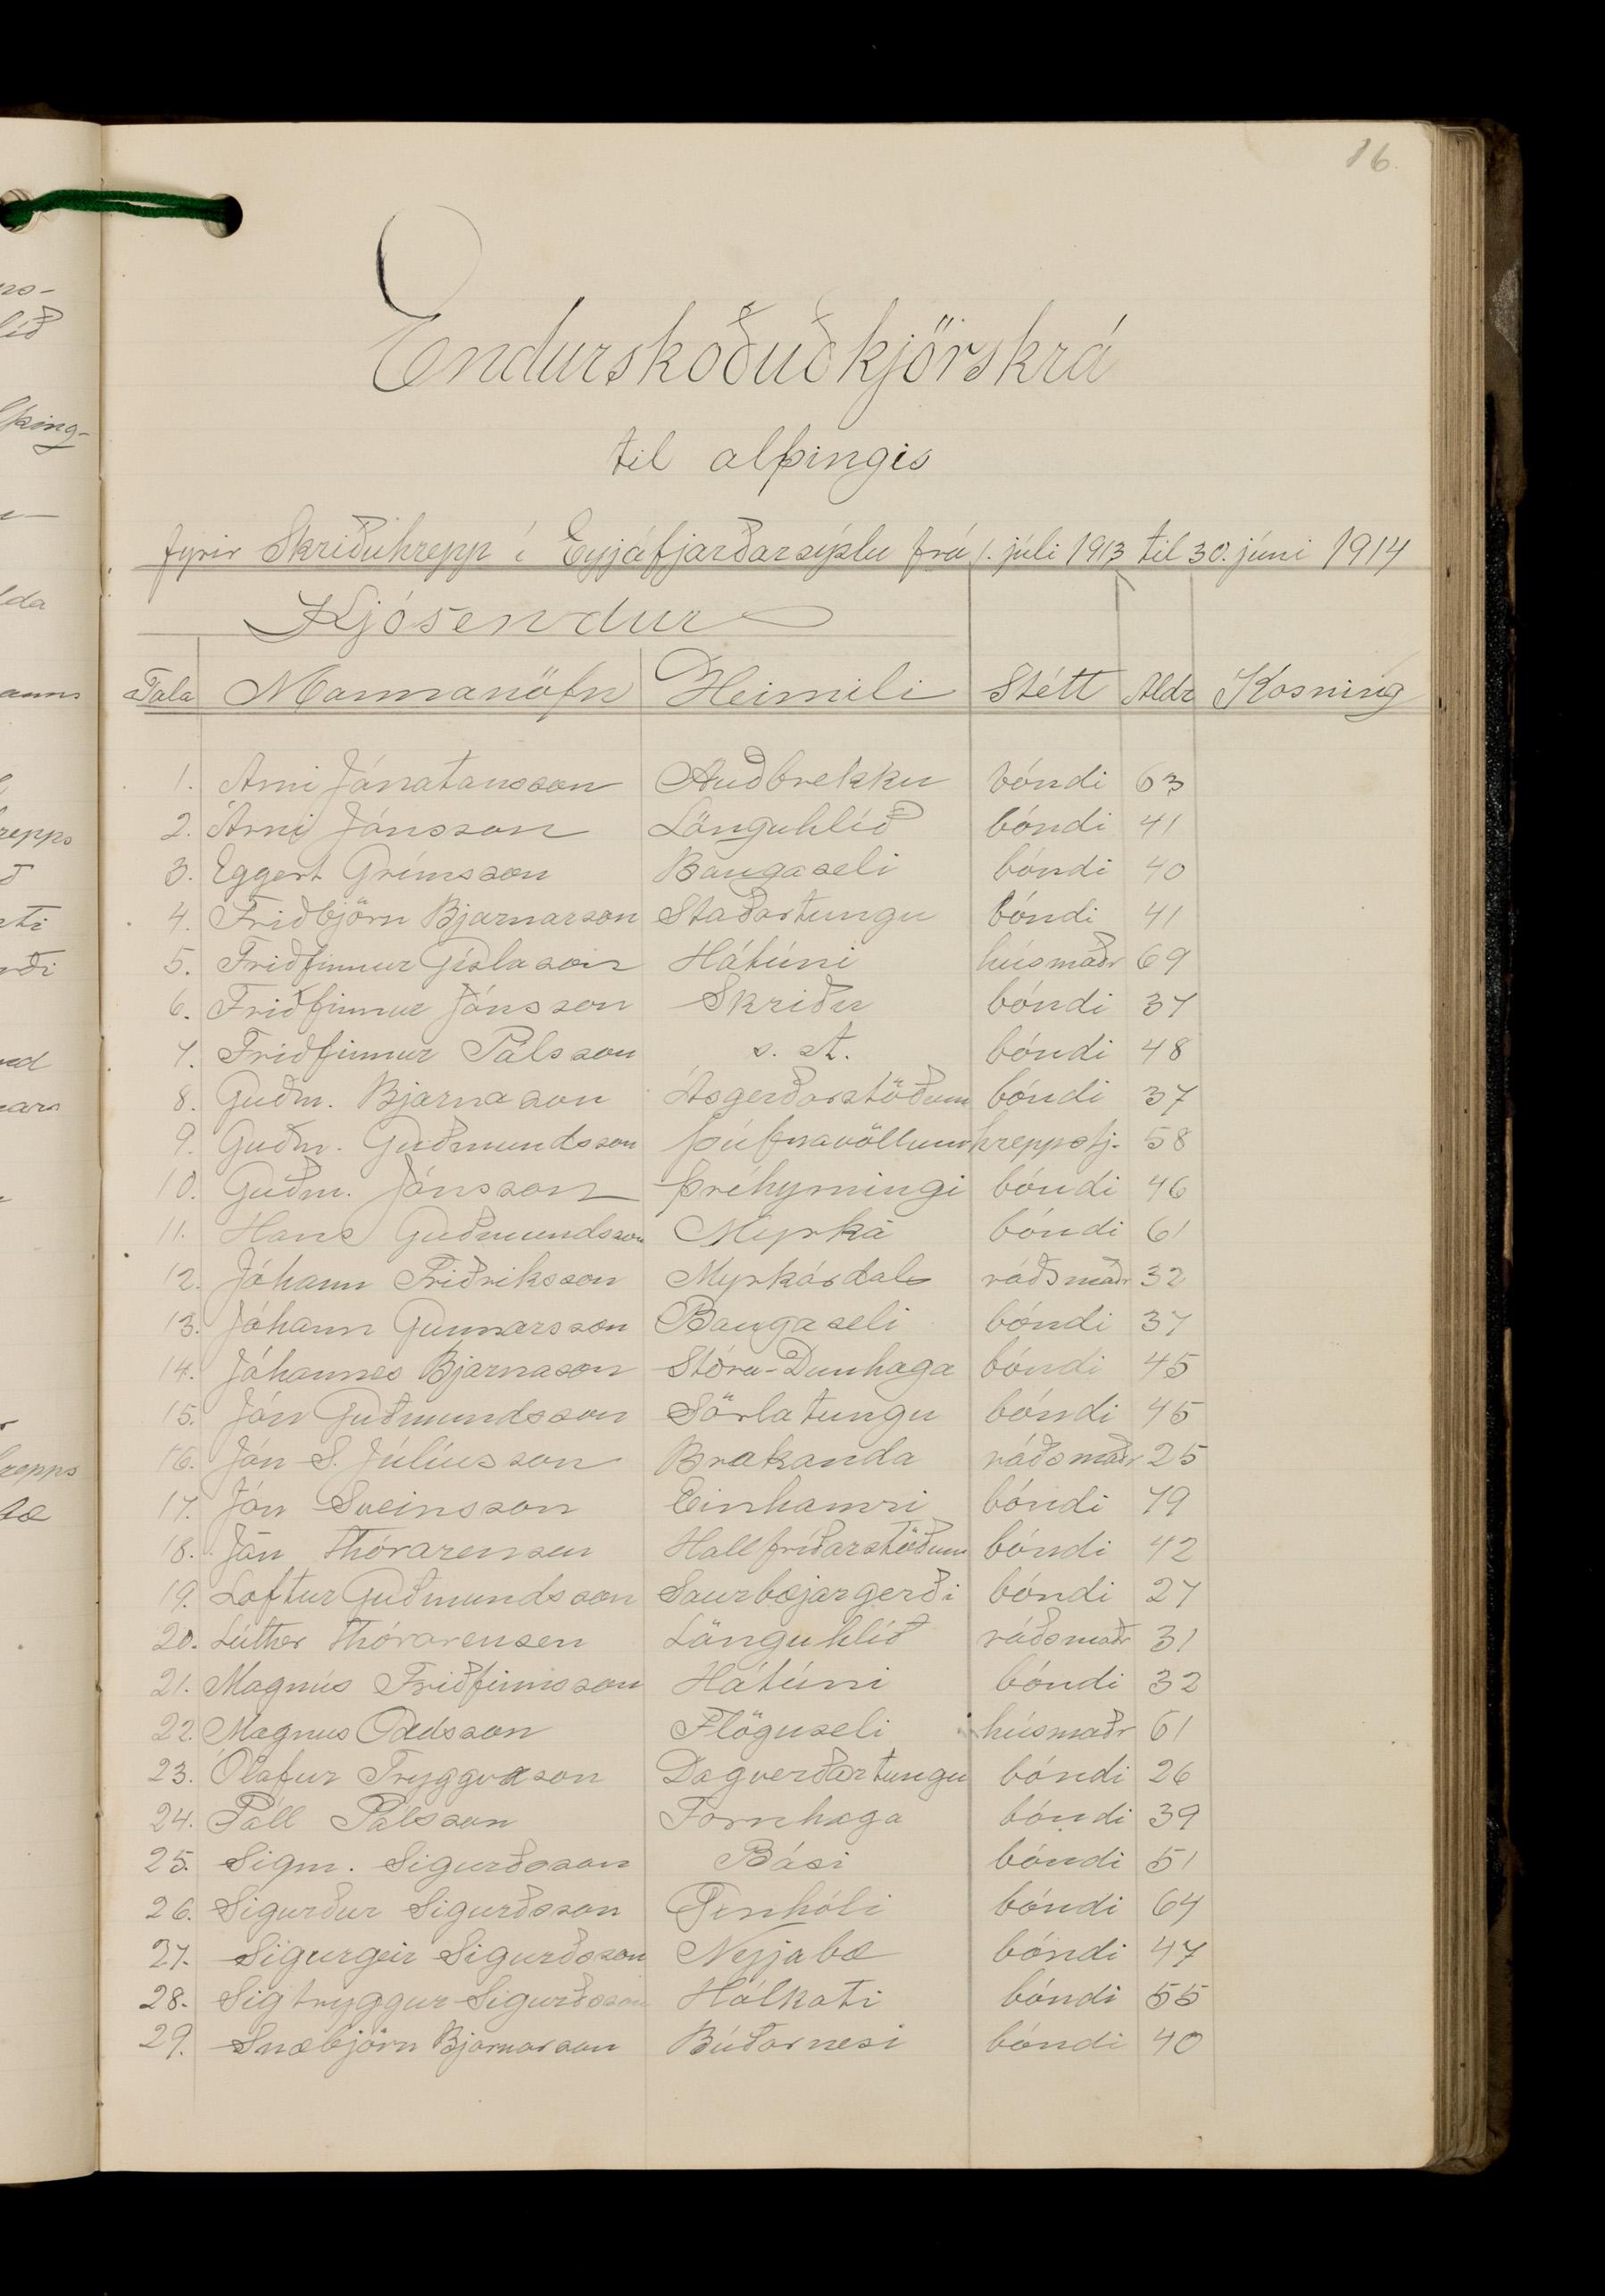 16.
Endurskoðuð kjörskrá
til alþingis
fyrir Skriðuhrepp í Eyjáfjarðarsýslu frá 1. júli 1913 til 30. júni 1914
Kjósendur
Tala Mannanöfn Heimili Stétt Aldr Kosning
1. Árni Jónatansson Auðbrekku bóndi 63
2. Árni Jónsson Lönguhlíð bóndi 41
3. Eggert Grímsson Baugaseli bóndi 40
4. Friðbjörn Bjarnarson Staðartungu bóndi 41
5. Friðfinnur Gíslason Hátúni húsmaðr 69
6. Friðfinnur Jónsson Skriðu bóndi 37
7. Friðfinnur Pálsson s. st. bóndi 48
8. Guðm. Bjarnason Ásgerðarstöðum bóndi 37
9. Guðm. Guðmundsson Þúfnavöllum hreppstj. 58
10. Guðm. Jónsson Þríhyrningi bóndi 46
11. Hans Guðmundsson Myrká bóndi 61
12. Jóhann Friðriksson Myrkárdal ráðsmaðr 32
13. Jóhann Gunnarsson Baugaseli bóndi 37
14. Jóhannes Bjarnason Stóra-Dunhaga bóndi 45
15. Jón Guðmundsson Sörlatungu bóndi 45
16. Jón S. Júlíusson Brakanda ráðsmaðr 25
17. Jón Sveinsson Einhamri bóndi 79
18. Jón Thórarensen Hallfríðarstöðum bóndi 42
19. Loftur Guðmundsson Saurbæjargerði bóndi 27
20. Lúther Thórarensen Lönguhlíð ráðsmaðr 31
21. Magnús Friðfinnsson Hátúni bóndi 32
22. Magnus Oddsson Flöguseli húsmaðr 61
23. Ólafur Tryggvason Dagverðartungu bóndi 26
24. Páll Pálsson Fornhaga bóndi 39
25. Sigm. Sigurðsson Bási bóndi 51
26. Sigurður Sigurðsson Penhóli bóndi 64
27. Sigurgeir Sigurðsson Neyjabæ bóndi 47
28. Sigtryggur Sigurðsson Hólkoti bóndi 55
29. Snæbjörn Bjarnarson Búðarnesi bóndi 40